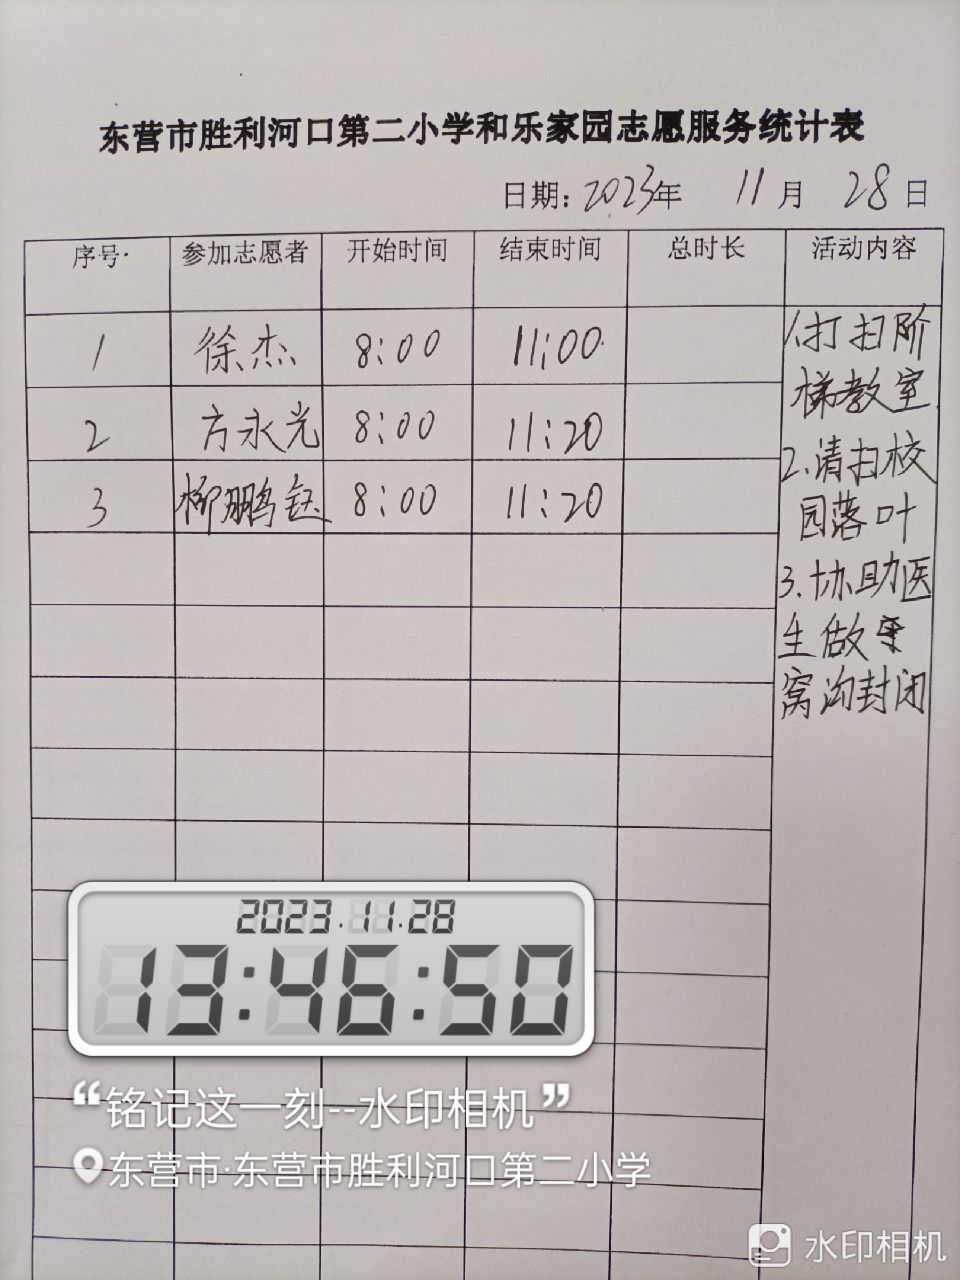 东营市胜利河口第二小学和乐家园志愿服务统计表
日期: 2023年 11月 28日
序号 参加志愿者 开始时间 结束时间 总时长 活动内容
1 徐杰 8:00 11:00
2 方永光 8:00 11:20
3 柳鹏钰 8:00 11:20
1.打扫阶
梯教室
2.清扫校
园落叶
3.协助医
生做
窝沟封闭
2023.11.28
13:46:50
“铭记这一刻--水印相机”
东营市·东营市胜利河口第二小学
水印相机